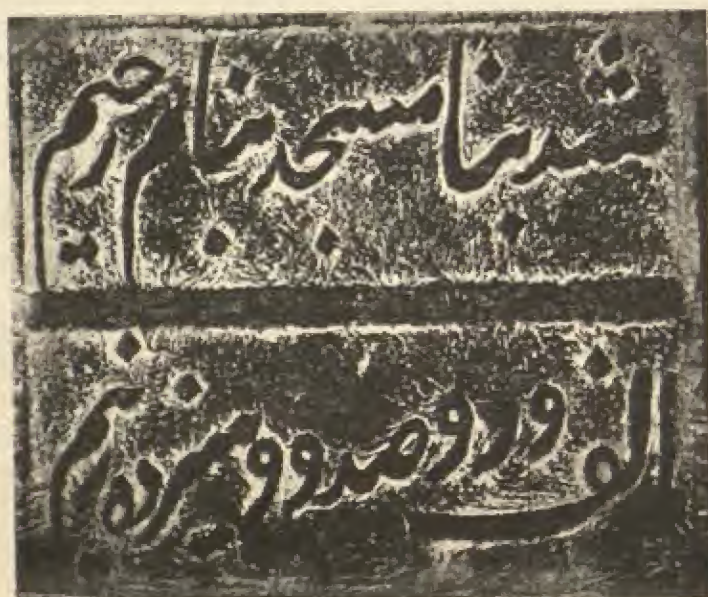 شد بنا مسجد بنام رحیم
الف و دو صد و